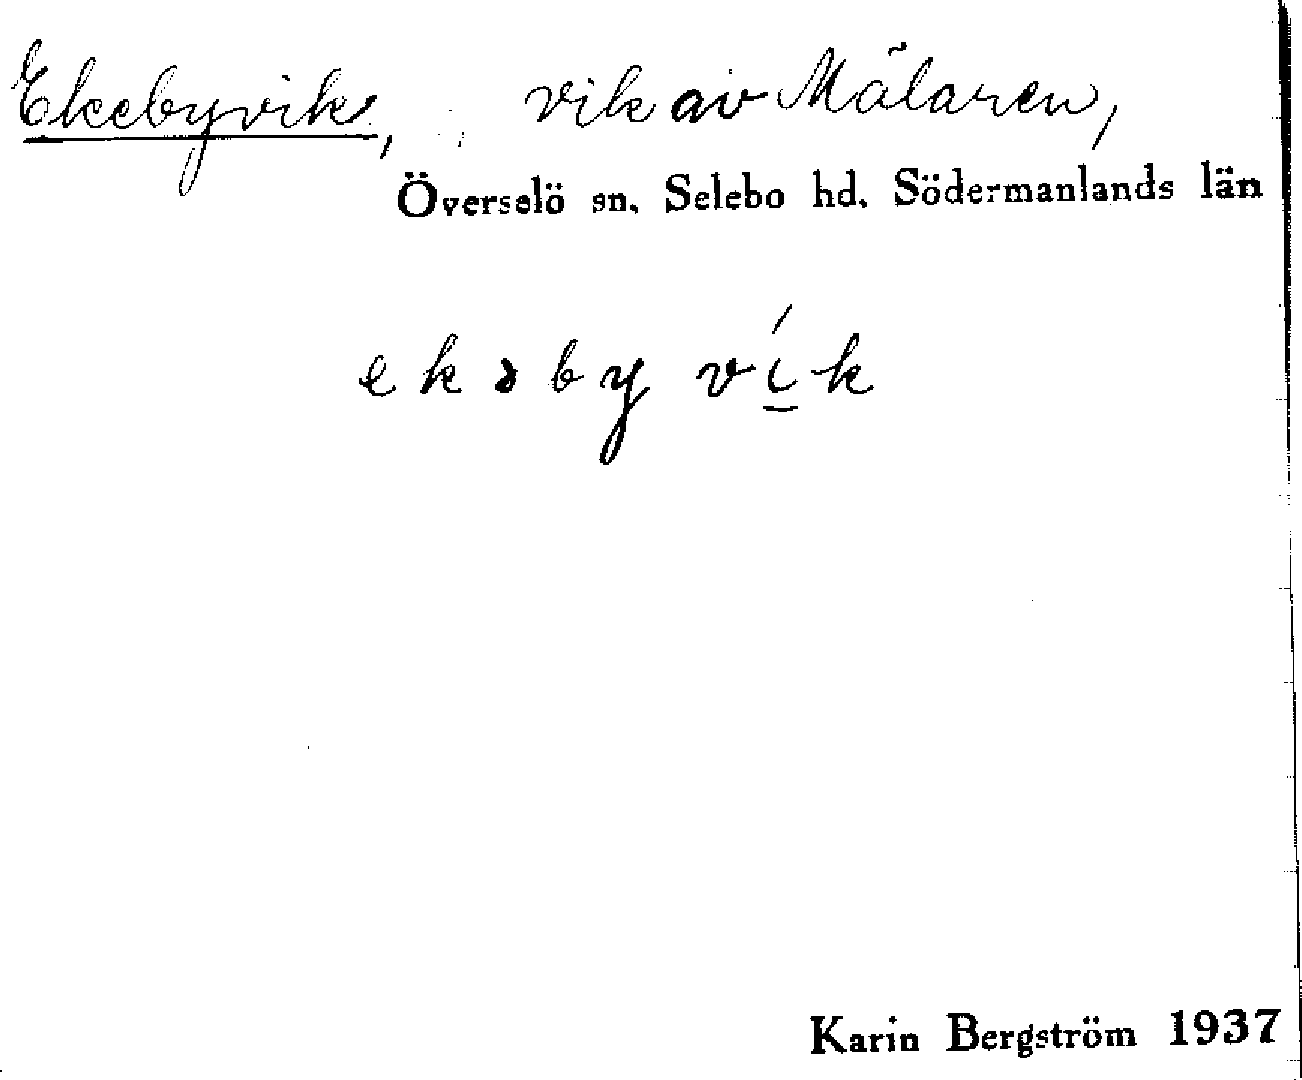 Ekebyvik, vik av Mälaren,
Överselö sn. Selebo hd. Södermanlands län
ekəby ví̱k
Karin Bergström 1937